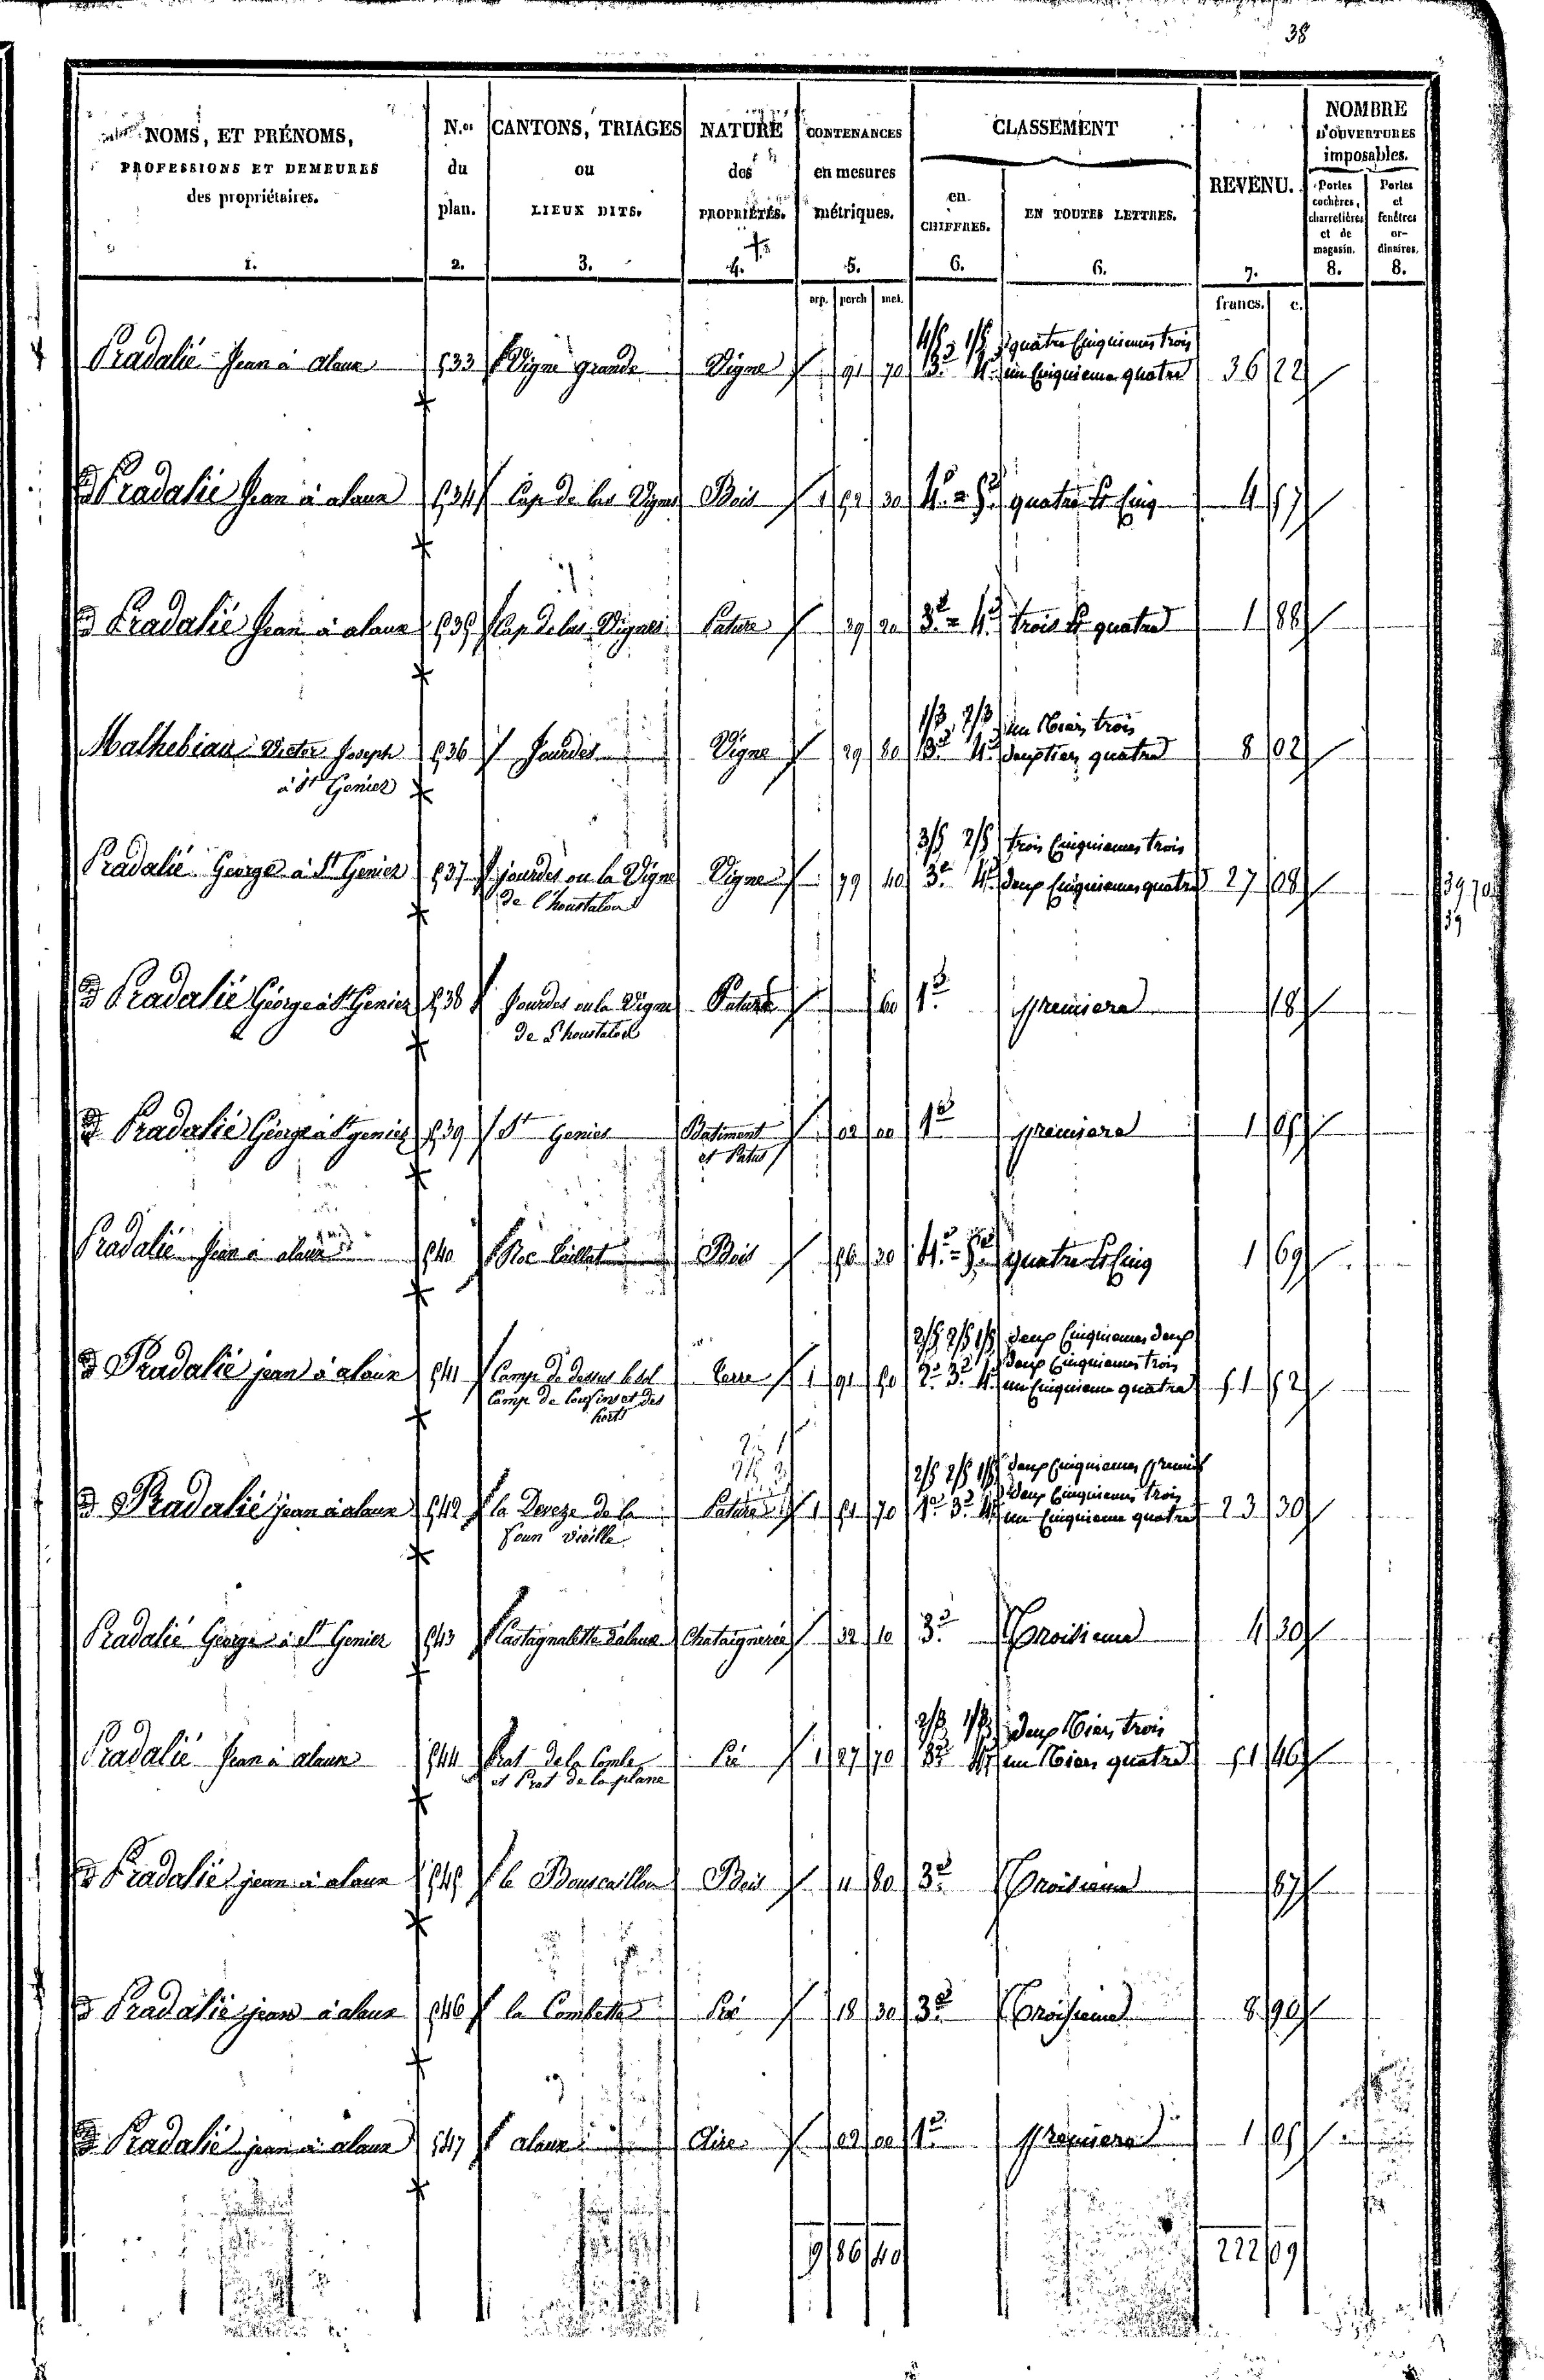 38
NOMS, ET PRÉNOMS,
PROFESSIONS ET DEMEURES
des propriétaires.
1.
N.os
du
plan.
2.
CANTONS, TRIAGES
ou
LIEUX DITS.
3.
NATURE
des
PROPRIÉTÉS.
4.
CONTENANCES
en mesures
métriques.
5.
arp. perch mèt.
CLASSEMENT
en
CHIFFRES.
6.
EN TOUTES LETTRES.
6.
REVENU.
7.
francs. c.
NOMBRE
D'OUVERTURES
imposables.
Portes
cochères,
charretières
et de
magasin.
8.
Portes
et
fenêtres
or-
dinaires.
8.
4/5 1/5 quatre Cinquiemes trois
Pradalié Jean à alaux 533 Vigne grande Vigne 91 70 3e 4e un Cinquieme quatre 36 22
Pradalié Jean à alaux 534 Cap de las Vignes Bois 1 52 30 4e = 5e quatre Et Cinq 4 57
Pradalié Jean à alaux 535 Cap de las Vignes Pature 39 20 3e = 4e trois Et quatre 1 88
1/3 2/3 un tiers trois
Mathebiau Victor Joseph 536 Jourdes Vigne 29 80 3e 4e deux tiers quatre 8 02
à St Geniez
3/5 2/5 trois Cinquiemes trois
Pradalié George à St Geniez 537 jourdes ou la Vigne Vigne 79 40 3e 4e deux Cinquiemes quatre 27 08
de l'houstalou
39 70
39
Pradalié George à St Geniez 538 Jourdes ou la Vigne Pature 60 1e premiere 18
de l'houstalou
Pradalié George à St geniez 539 St Geniez Batiment 02 00 1e premiere 1 05
et Patus
Pradalié Jean à alaux 540 Roc Bois 56 30 4e = 5e quatre Et Cinq 1 69
2/5 2/5 1/5 deux Cinquiemes deux
deux Cinquiemes trois
Pradalié jean à alaux 541 Camp de dessus le sol Terre 1 91 50 2e 3e 4e un Cinquieme quatre 51 52
Camp de et des
horts
2/5 2/5 1/5 deux Cinquiemes premier
deux Cinquiemes trois
Pradalié jean à alaux 542 la Deveze de la Pature 1 51 70 1e 3e 4e un Cinquieme quatre 23 30
foun vieille
Pradalié George à St Geniez 543 Castagnalette d'alaux Chataigneraie 32 10 3e Troisieme 4 30
2/3 1/3 deux tiers trois
Pradalié Jean à alaux 544 Prat de la Combe Pré 1 27 70 3e 4e un tiers quatre 51 46
et Prat de la plane
Pradalié jean à alaux 545 le Bouscaillou Bois 11 80 3e Troisieme 87
Pradalié jean à alaux 546 la Combette Pré 18 30 3e Troisieme 8 90
Pradalié jean à alaux 547 alaux Aire 02 00 1e premiere 1 05
9 86 40
222 09